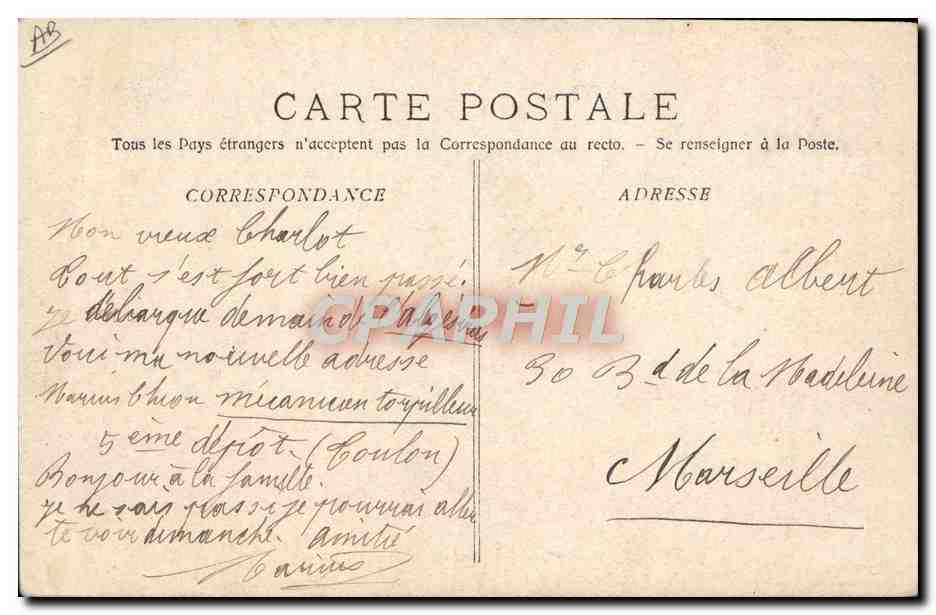 AB
CARTE POSTALE
Tous les Pays étrangers n'acceptent pas la Correspondance au recto. - Se renseigner à la Poste.
CORRESPONDANCE
Mon vieux Charlot
Tout s'est fort bien passé.
je debarque demain de l'algesiras
Voici ma nouvelle adresse
Marius mécanicien torpilleur
5ème dépôt. (Toulon)
Bonjour à la famille.
je ne sais pas si je pourrai aller
te voir dimanche. amitié
Marius
ADRESSE
Mr Charles Albert
30 Bd de la Madeleine
Marseille
CPAPHIL